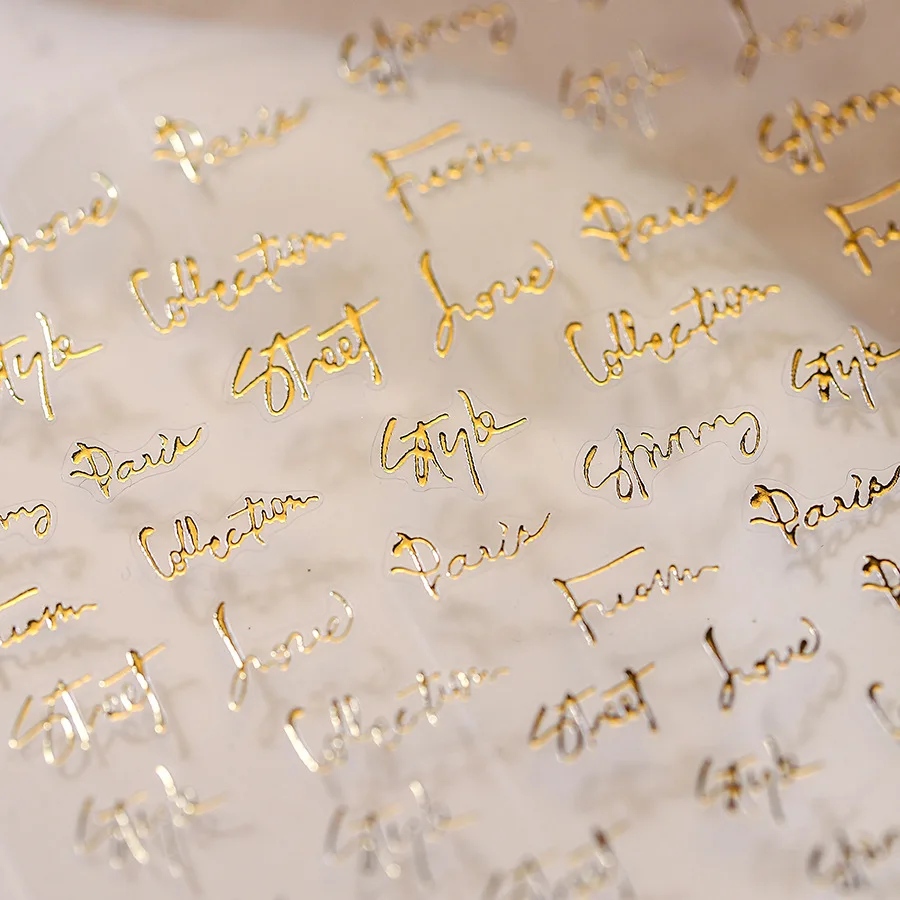 Paris
From
Love
Collection
Love
Paris
Style
Street
Collection
Style
Paris
Style
Shinny
Collection
Paris
From
Paris
Street
Love
Collection
Street
Love
Style
Style
Style